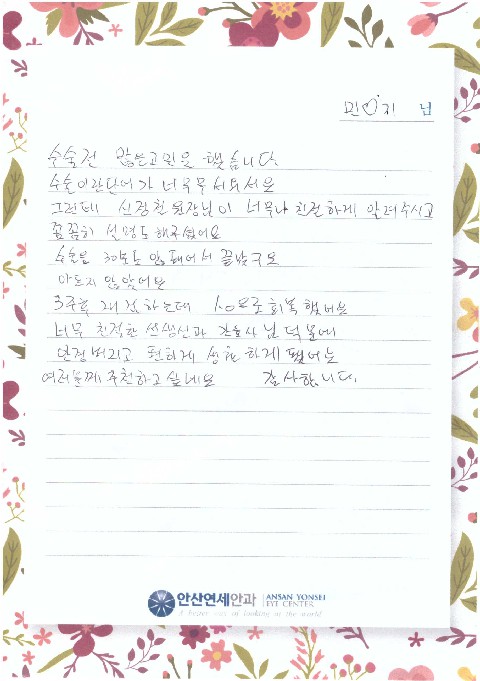 민♡지 님
수술전 많은고민을 했습니다
수술이란단어가 너무무서워서요
그런데 신정헌원장님이 너무나 친절하게 알려주시고
꼼꼼히 설명도 해주셨어요
수술은 30분도 안돼어서 끝났구요
아프지 않았어요
3주후 재검하는데 1.0으로회복했어요
너무 친절한 선생님과 간호사 님 덕분에
안경버리고 편하게 생활하게 됐어요
여러분께 추천하고싶네요 감사합니다.
안산연세안과 ANSAN YONSEI EYE CENTER
A better way of looking at the world